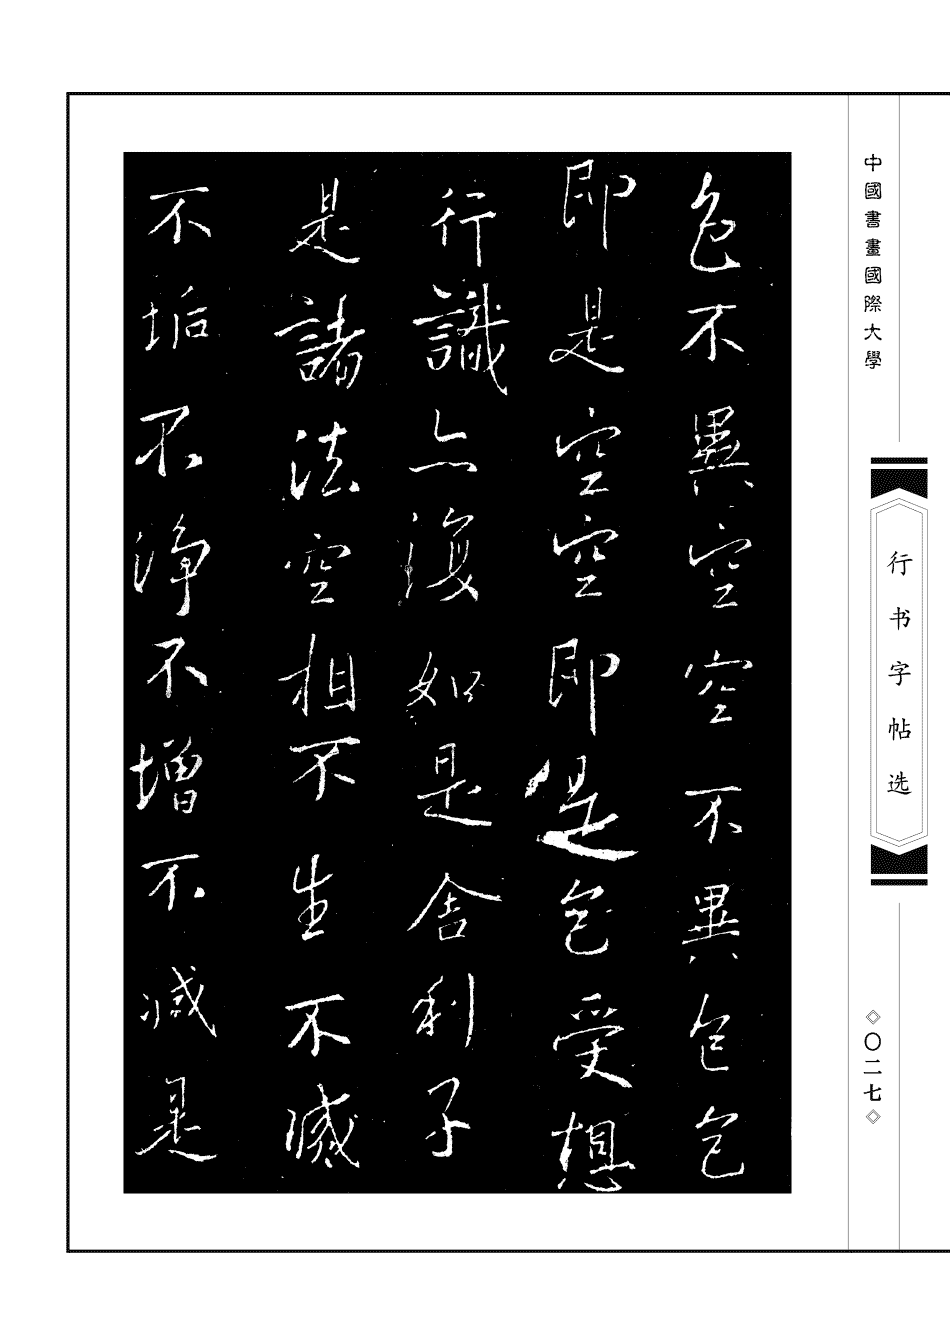 中國書畫國際大學
行书字帖选
◇〇二七◇
色不異空空不異色色
即是空空即是色受想
行識亦復如是舍利子
是諸法空相不生不滅
不垢不淨不增不減是